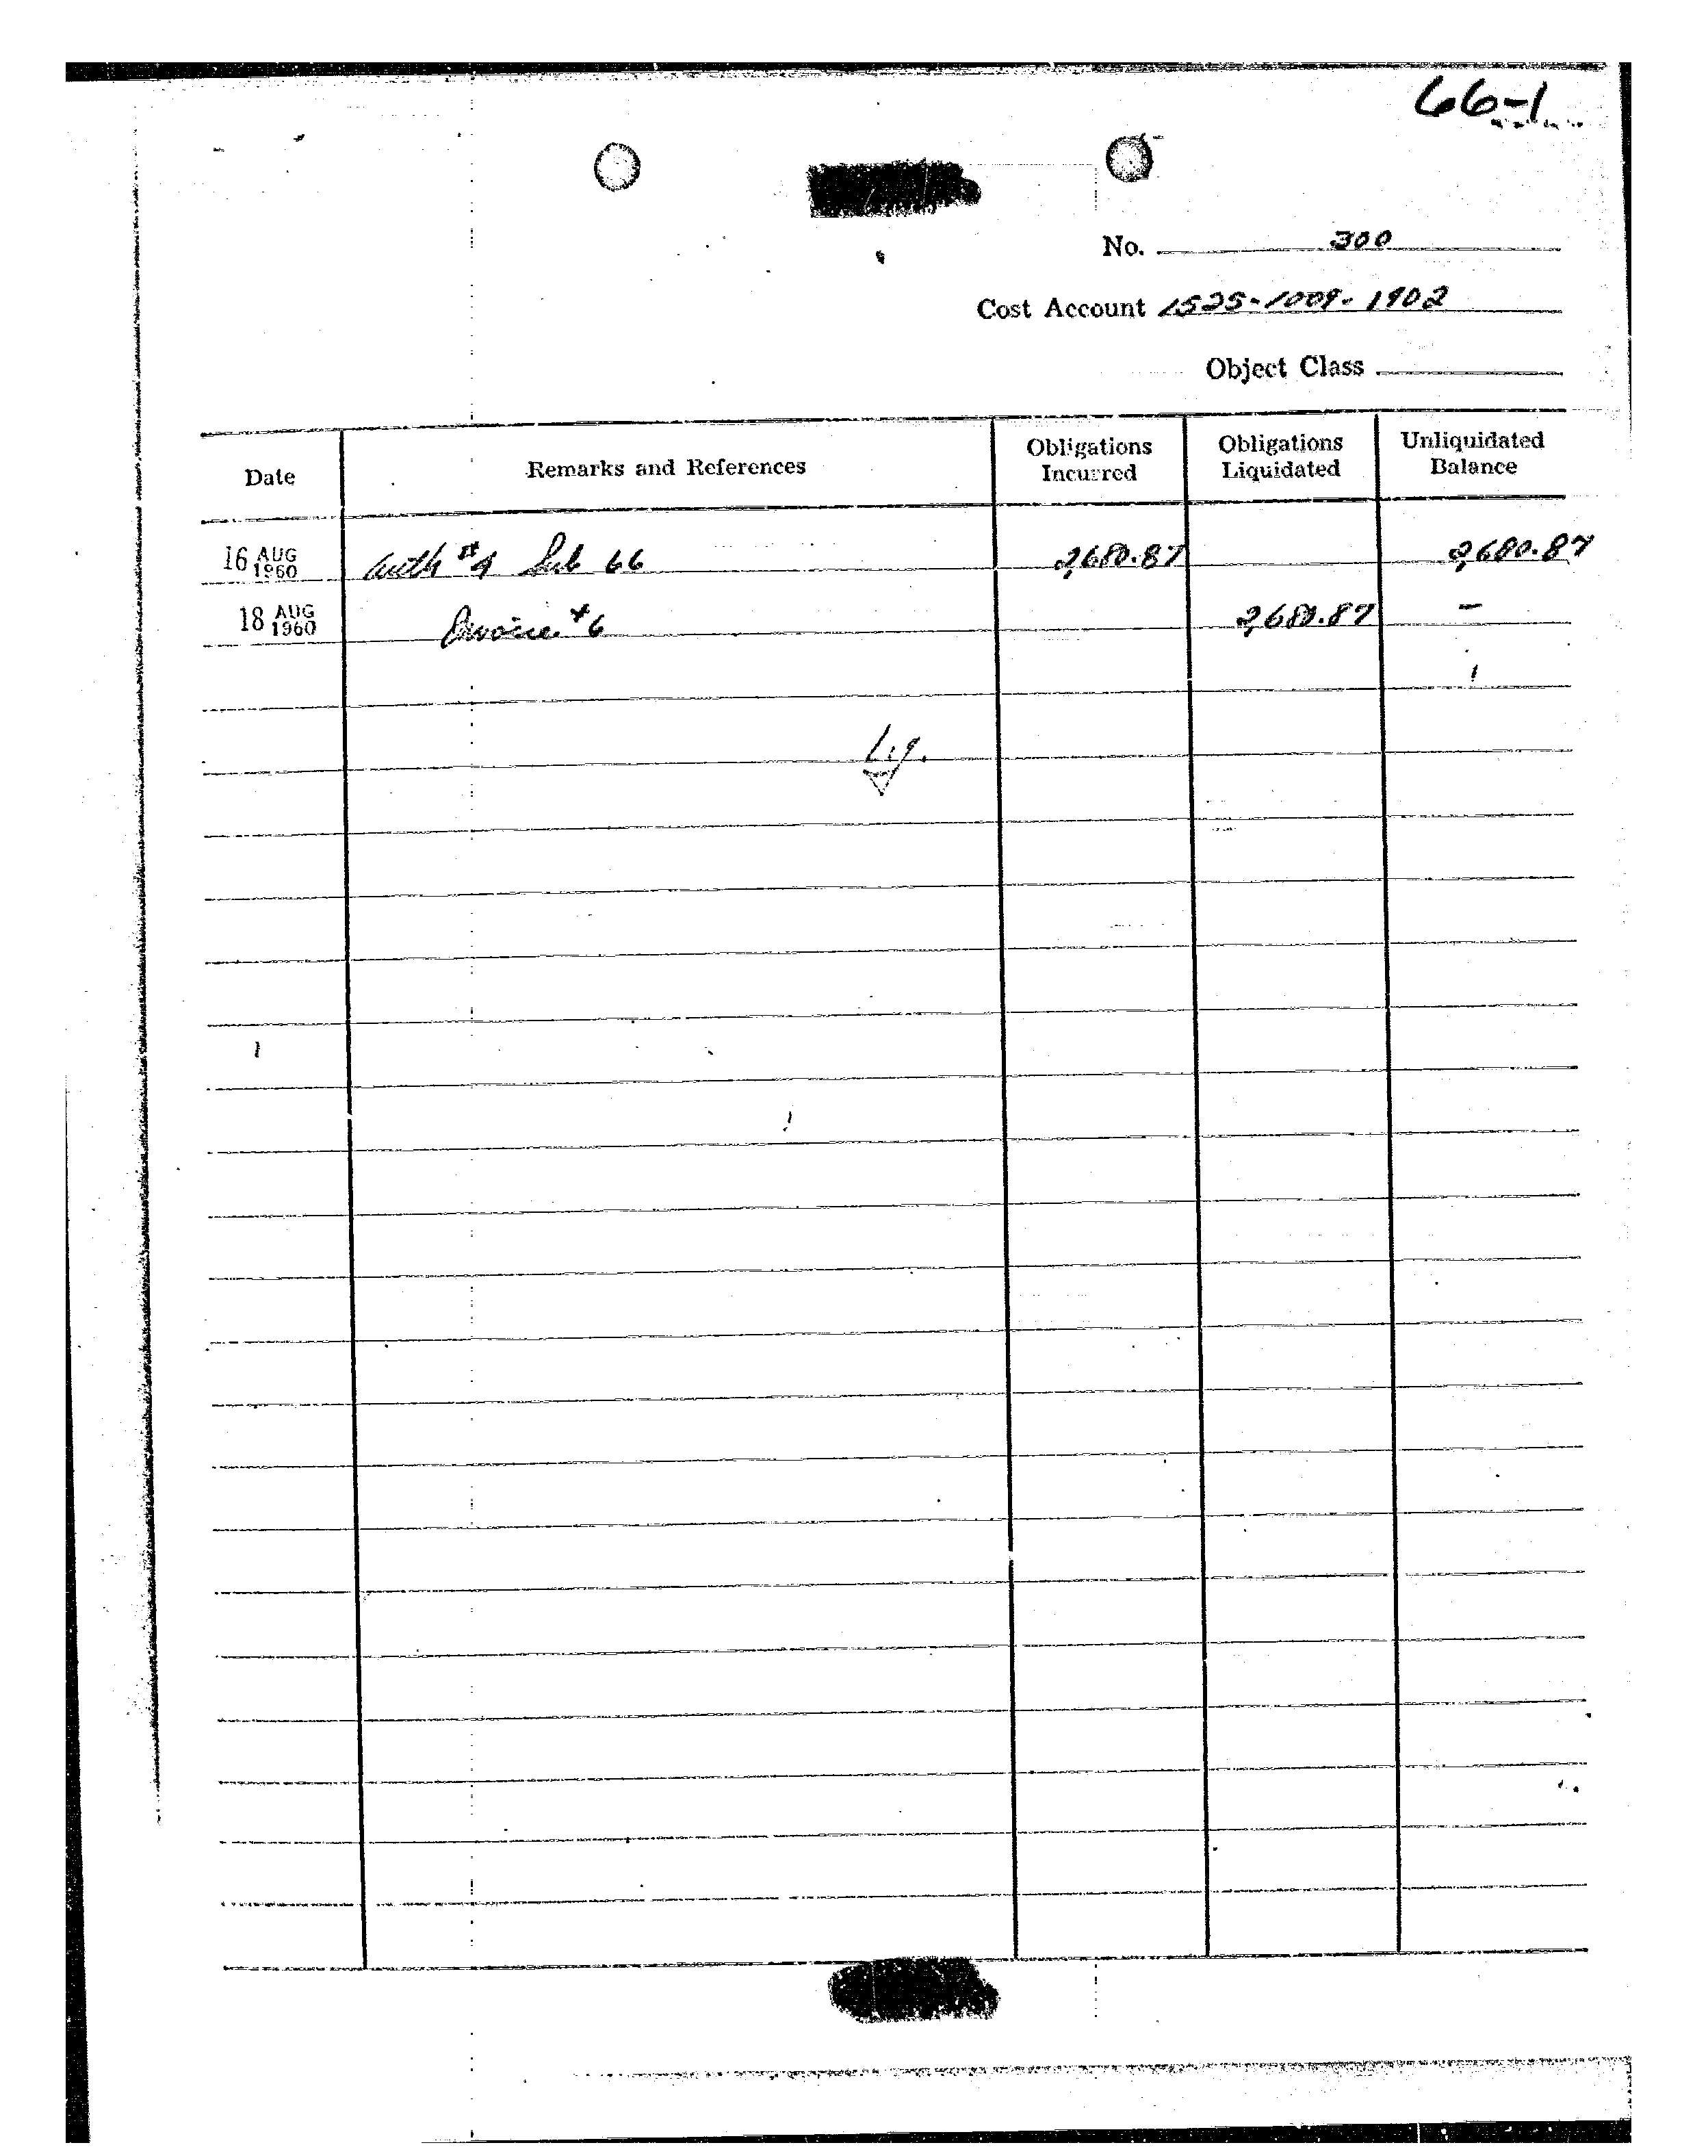 66-1
No. 300
Cost Account 1525-1009-1902
Object Class
Date Remarks and References Obligations Incurred Obligations Liquidated Unliquidated Balance
16 AUG 1960 Auth #4 Sub 66 2,680.87 2,680.87
18 AUG 1960 Invoice #6 2,680.87 –
Liq.